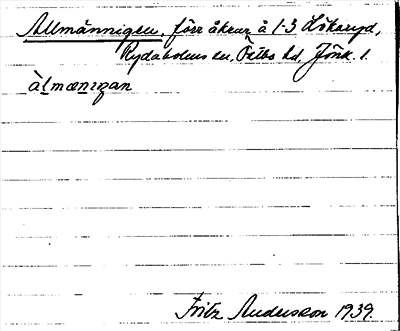 Allmännigen, förr åkrar å 1-3 Hökaryd,
Rydaholms sn, Östbo hd, Jönk. l.
àlmænigan
Fritz Andersson 1939.